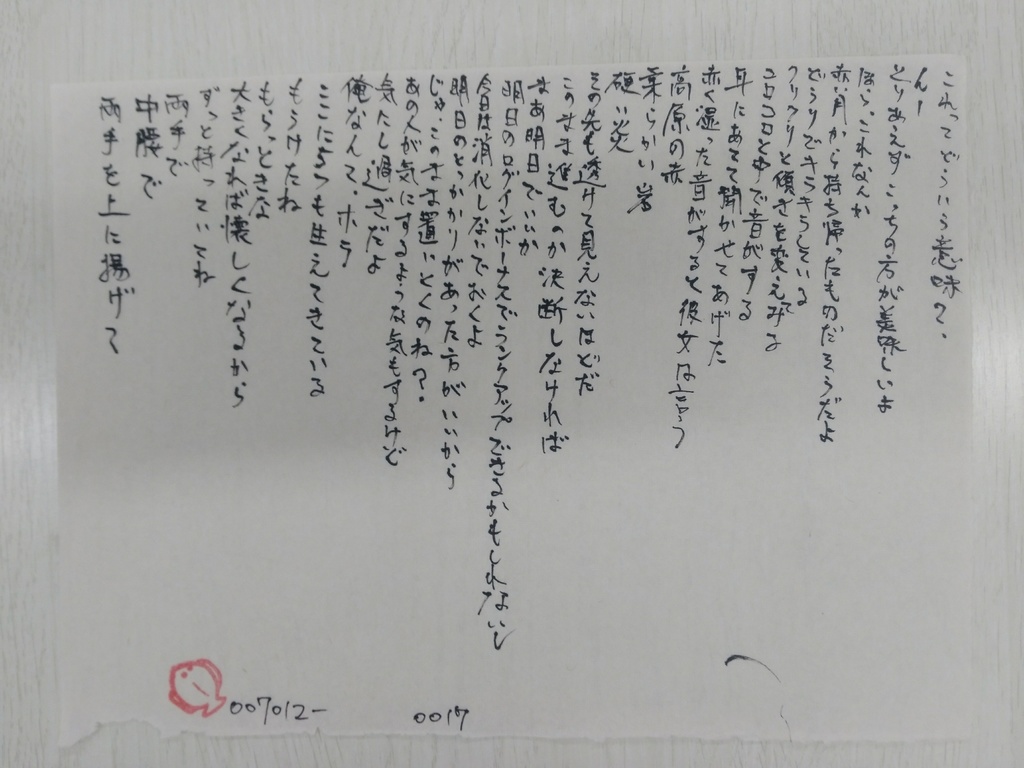 これってどういう意味で、
んー
とりあえずこっちの方が美味しいよ
ほら、これなんか
赤い月から持ち帰ったものだそうだよ
どうりでキラキラしている
クリクリと傾きを変えみな
コロコロと中で音がする
耳にあてて聞かせてあげた
赤く湿った音がすると彼女は言う
高原の赤
柔らかい岩
硬い炎
その先も透けて見えないほどだ
このまま進むのか決断しなければ
まあ明日でいいか
明日のログインボーナスでランクアップできるかもしれないし
今日は消化しないでおくよ
明日のとっかかりがあった方がいいから
じゃ、このまま置いとくのね?
あの人が気にするような気もするけど
気にし過ぎだよ
俺なんて、ホラ
ここにらつも生えてきている
もうけたね
もらっときな
大きくなれば懐しくなるから
ずっと持っていてね
両手で
中腰で
両手を上に揚げて
007012-
0017